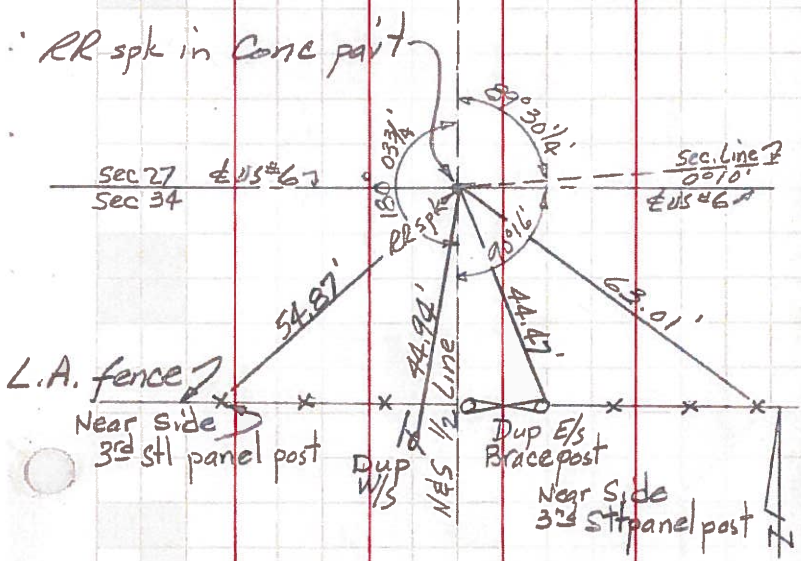 RR spk in Conc pav't
89°30¼'
180°03¾'
Sec 27 ℄ US #6
Sec 34
Sec. Line
0°10'
℄ US #6
RR spk
90°16'
54.87'
44.94'
44.47'
63.01'
L.A. fence
Near Side
3rd Stl panel post
Dup
W/S
N&S 1/2 Line
Dup E/S
Brace post
Near Side
3rd Stl panel post
N